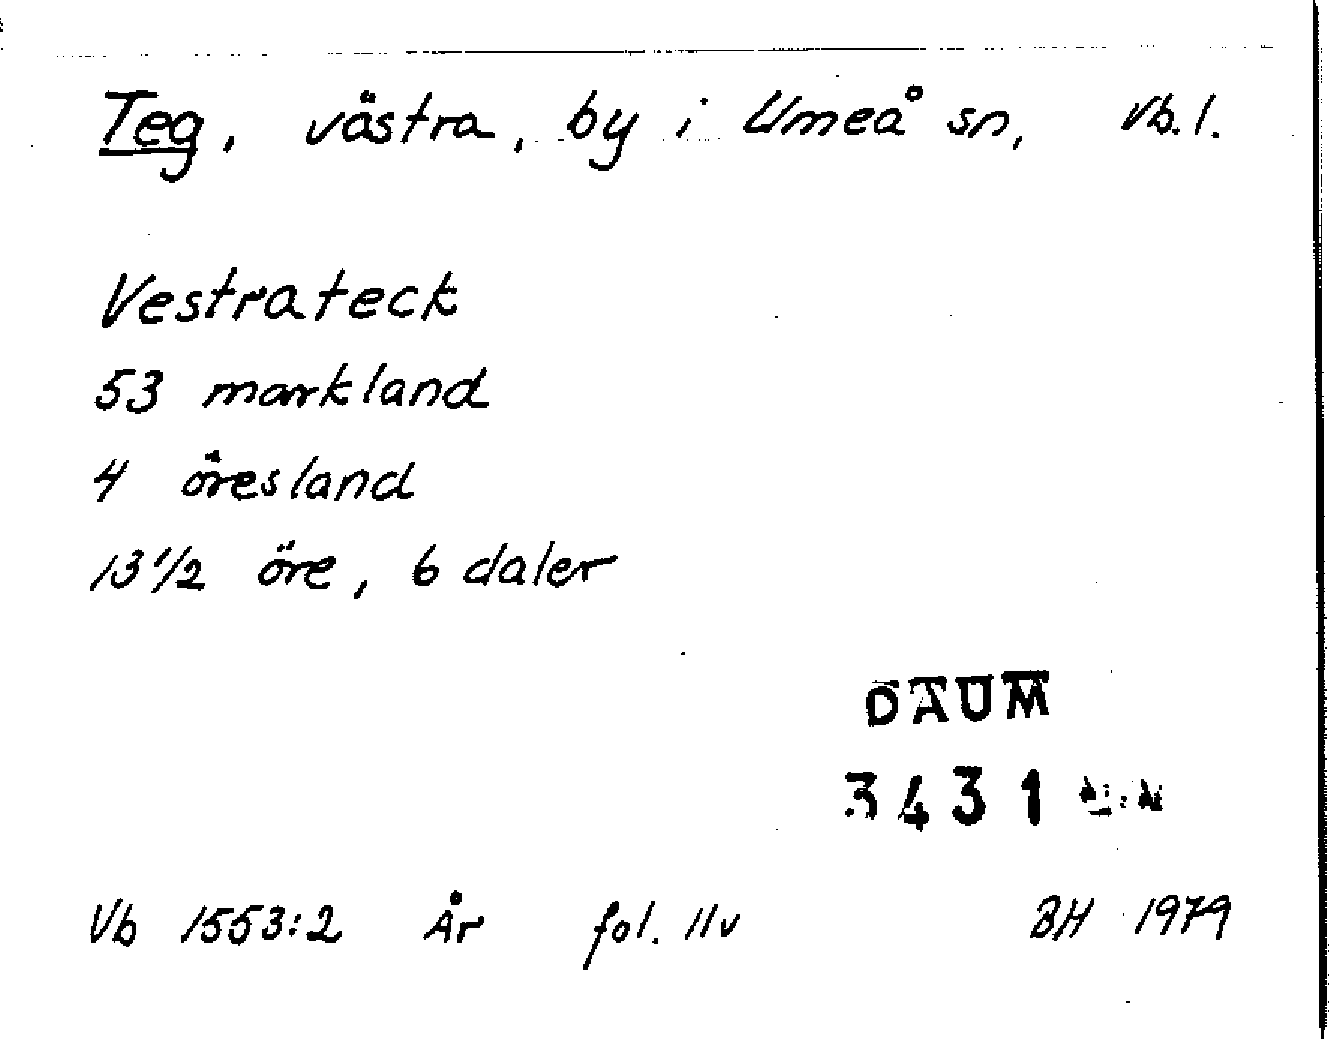 Teg, västra, by i Umeå sn, Vb. l.
Vestrateck
53 markland
4 öresland
13 1/2 öre, 6 daler
DAUM
3431
Vb 1553:2 År fol. 11v BH 1979